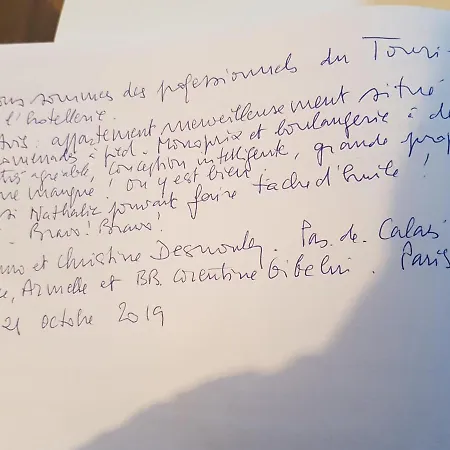 ous sommes des professionnels du Touri-
l'hotellerie.
Avis: appartement merveilleusement situé
promenade à pied. Monoprix et boulangerie à de
très agréable, conception intelligente, grande prop
ne manque! on y est bien!
si Nathalie pouvait faire tache d'huile!
Bravo! Bravo!
et Christine Desmouly. Pas. de. Calais
Armelle et BB. Corentine Gibelin. Paris
21 octobre 2019